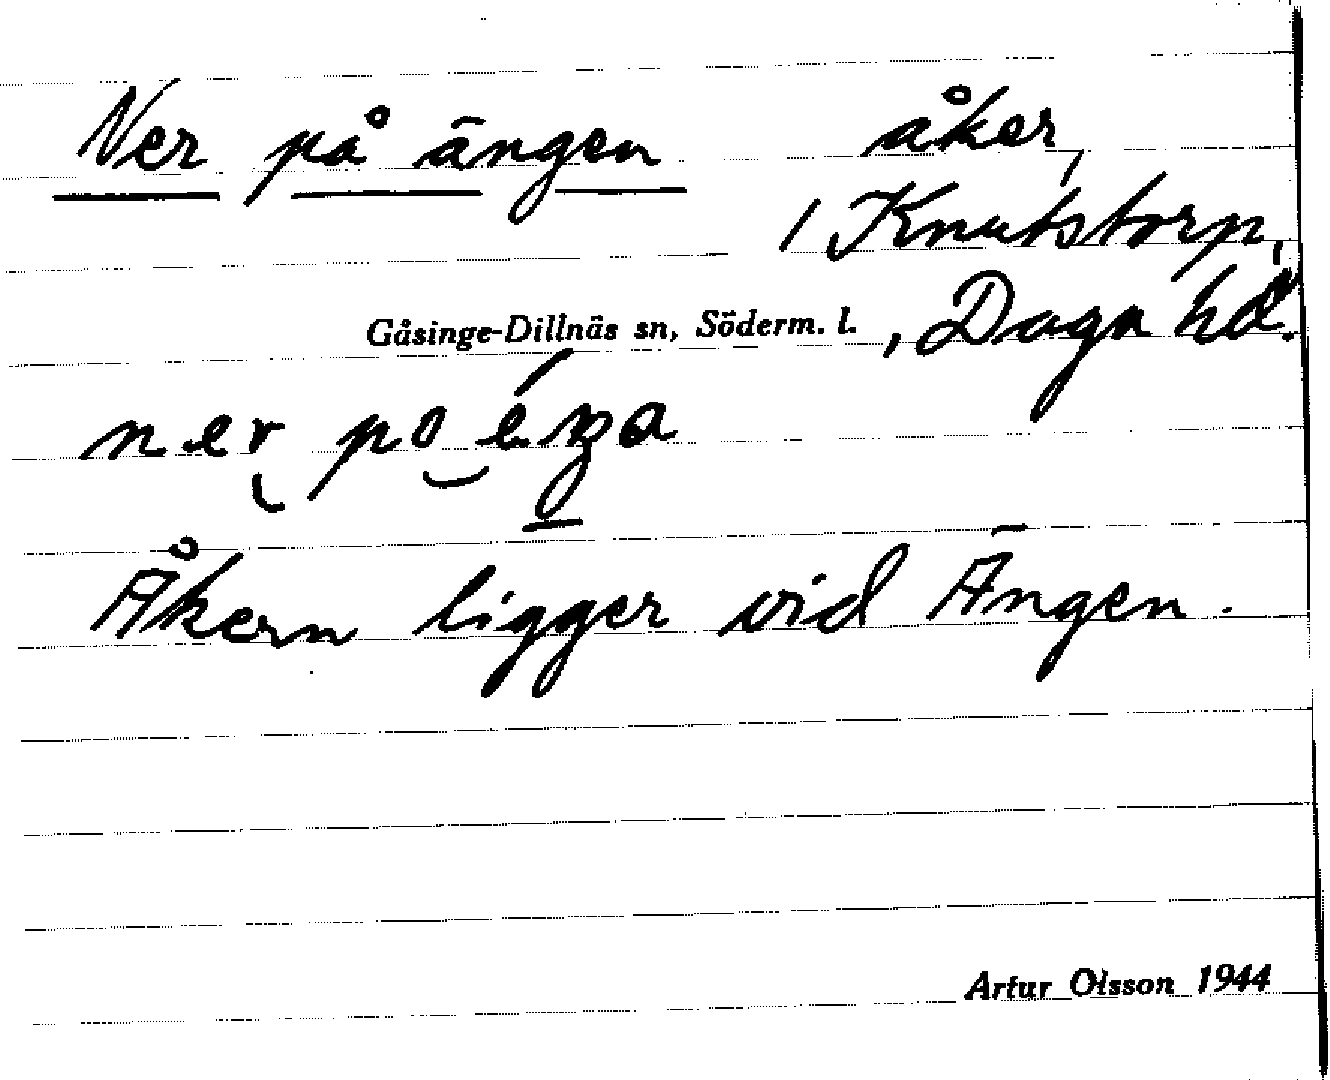 Ner på ängen åker,
1 Knutstorp,
Gåsinge-Dillnäs sn, Söderm. l., Daga hd.
ner po
Åkern ligger vid Ängen.
Artur Olsson 1944